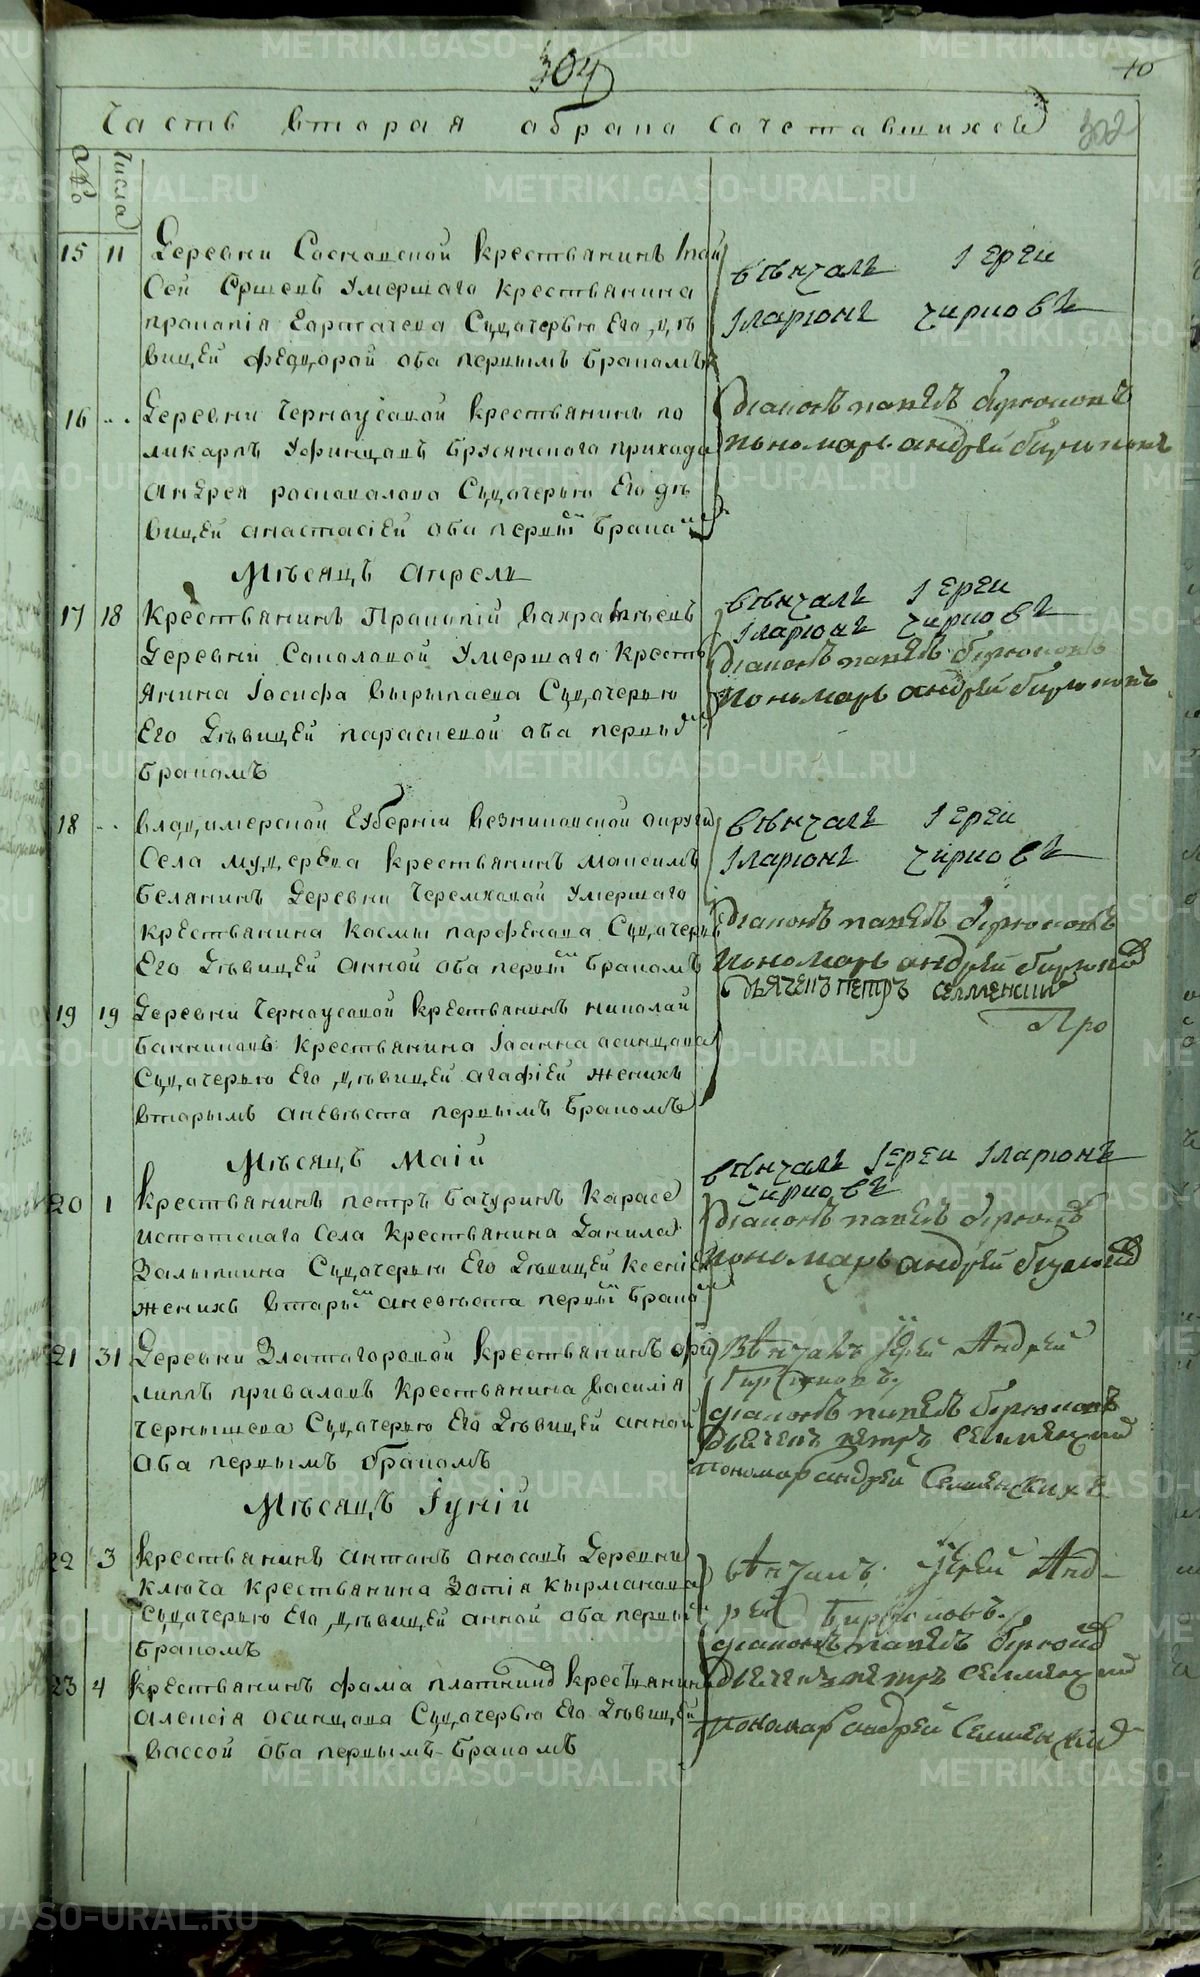 304
10
Часть вторая о бракосочетавшихся
302
Числа
15 11 Деревни Сосновской крестьянинъ Мои
сей Ершевъ Умершаго крестьянина
прокопія Карпачева Съдочерью Его дѣ
вицей федорой оба первымъ бракомъ
вѣнчалъ Іереи
Іларіонъ чирковъ
16 Деревни Черноусовой крестьянинъ по
ликарпъ Уфинцовъ Брусянскаго прихода
андрея Съдочерью Его дѣ
вицей анастасіей оба первым бракам
діаконъ павелъ бирюковъ
пономарь андрей бирюковъ
Мѣсяцъ апрель
17 18 крестьянинъ Прокопій Вахрамѣевъ
Деревни Соколовой Умершаго кресть
янина Іосифа Вырыпаева Съдочерью
Его Дѣвицей параскевой оба первым
бракомъ
вѣнчалъ Іереи
Іларіонъ чирковъ
діаконъ павелъ бирюковъ
пономарь андрей бирюковъ
18 владимерской Губерніи Везниковской округи
Села крестьянинъ максимъ
белянинъ Деревни Черемховой Умершаго
крестьянина касмы парфенова Съдочерью
Его Дѣвицей анной оба первым бракомъ
вѣнчалъ Іереи
Іларіонъ чирковъ
діаконъ павелъ бирюковъ
пономарь андрей бирюков
дьячекъ петръ селменскии
19 19 Деревни Черноусовой крестьянинъ николай
банниковъ крестьянина Іоанна осинцова
Съдочерью Его Дѣвицей агафіей женихъ
вторымъ аневѣста первымъ бракомъ
Мѣсяцъ Маіи
20 1 крестьянинъ петръ бачуринъ Карасе
истокскаго Села крестьянина Данила
Залыпкина Съдочерью Его Дѣвицей ксеніей
женихъ вторым аневѣста первым брако
вѣнчалъ Іереи Іларіонъ
чирковъ
діаконъ павелъ бирюков
пономарь андрей бирюков
21 31 Деревни Златогоровой крестьянинъ фи
липпъ приваловъ крестьянина василія
чернышева Съдочерью Его Дѣвицей анной
оба первымъ бракомъ
Вѣнчалъ Іерей Андрей
Бирюковъ.
діаконъ павелъ бирюковъ
дьячекъ петръ селменский
пономарь андрей Селменских
Мѣсяцъ Іуній
22 3 крестьянинъ антонъ аносовъ Деревни
ключа крестьянина Зотія кырманова
Съдочерью Его Дѣвицей анной оба первым
бракомъ
вѣнчалъ Іерей Анд-
рей Бирюковъ.
діаконъ павелъ бирюков
дьячекъ петръ селменский
23 4 крестьянинъ фома плотник крестьянина
алексія осинцова Съдочерью Его Дѣвицей
вассой оба первымъ бракомъ
пономарь андрей Селменский
METRIKI.GASO-URAL.RU